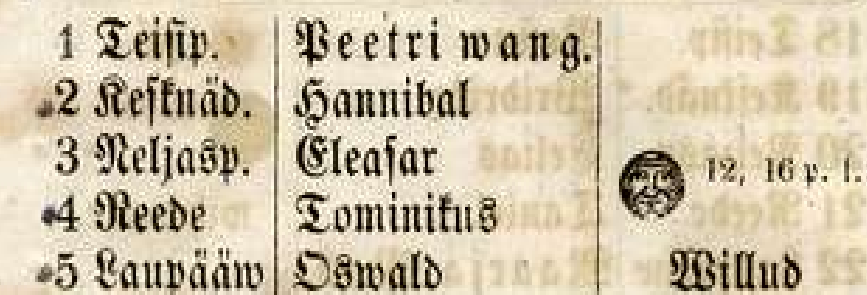 1 Teisip. Peetri wang.
2 Keſknäd. Hannibal
3 Neljasp. Eleaſar
12, 16 p. l.
4 Reede Tominikus
5 Laupääw Oswald Willud